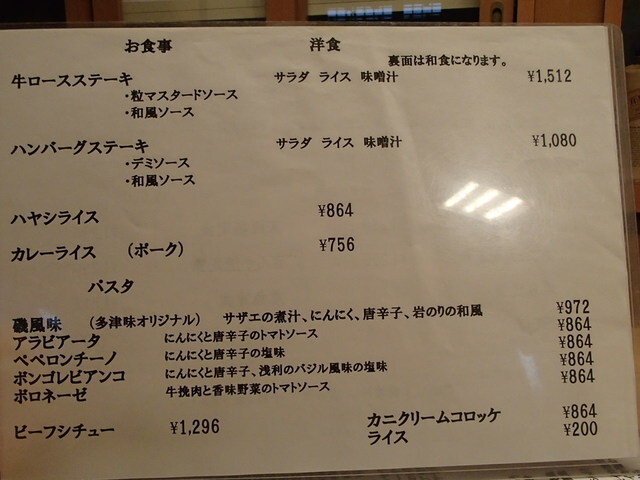 お食事 洋食
裏面は和食になります。
牛ロースステーキ サラダ ライス 味噌汁 ¥1,512
・粒マスタードソース
・和風ソース
ハンバーグステーキ サラダ ライス 味噌汁 ¥1,080
・デミソース
・和風ソース
ハヤシライス ¥864
カレーライス (ポーク) ¥756
パスタ
磯風味 (多津味オリジナル) サザエの煮汁、にんにく、唐辛子、岩のりの和風 ¥972
アラビアータ にんにくと唐辛子のトマトソース ¥864
ペペロンチーノ にんにくと唐辛子の塩味 ¥864
ボンゴレビアンコ にんにくと唐辛子、浅利のバジル風味の塩味 ¥864
ボロネーゼ 牛挽肉と香味野菜のトマトソース ¥864
ビーフシチュー ¥1,296 カニクリームコロッケ ¥864
ライス ¥200